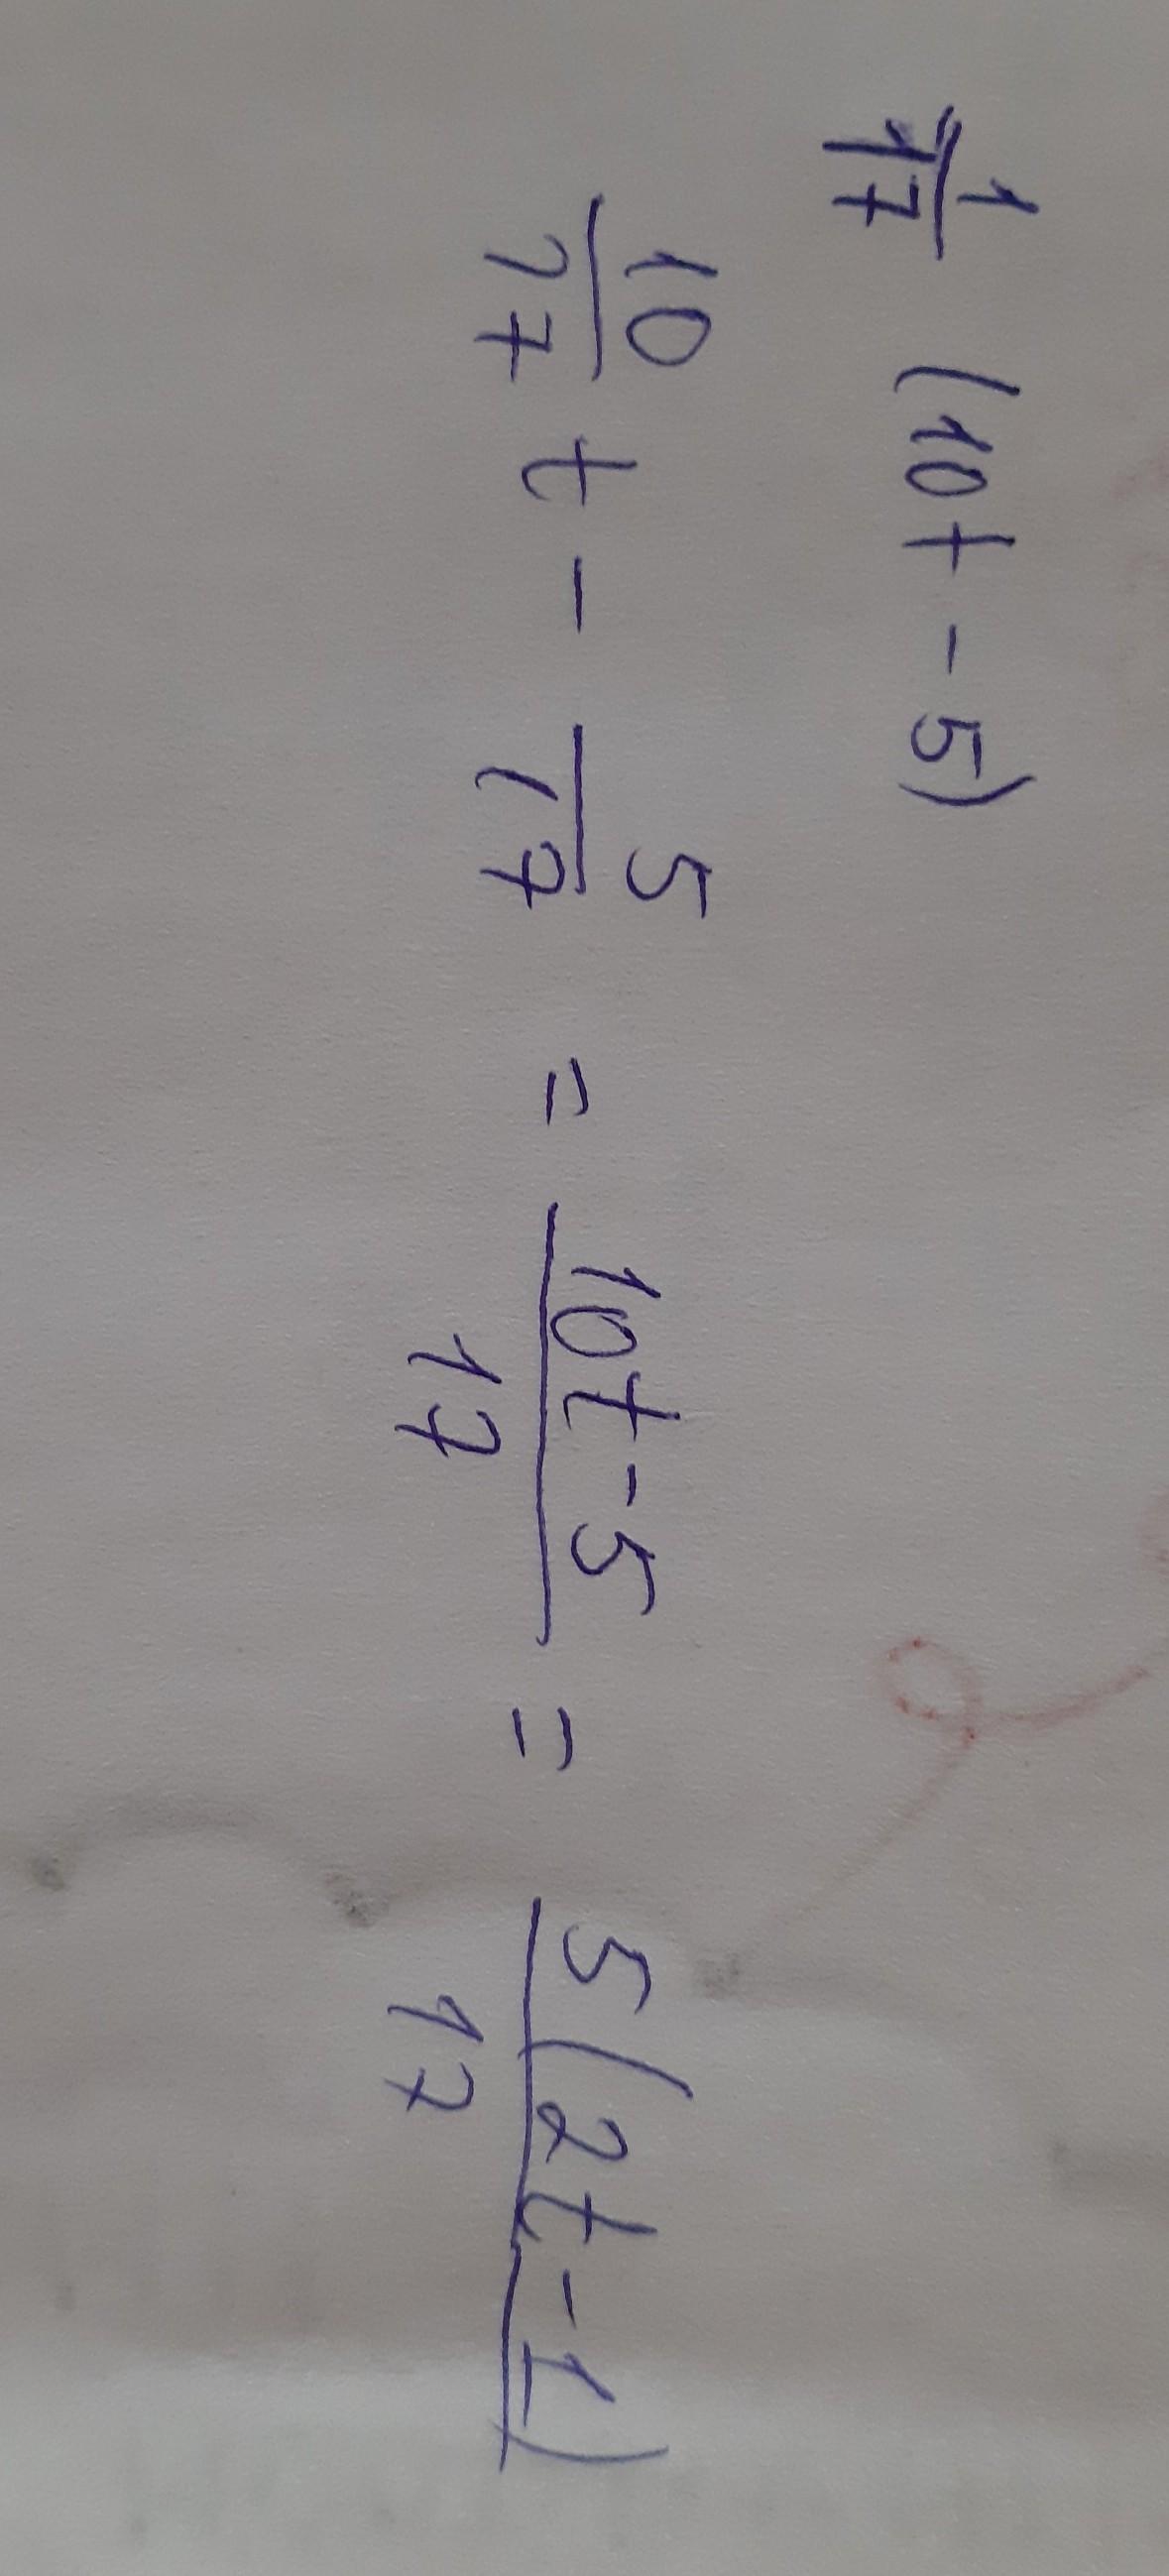 1/17 (10t - 5)
10/17 t - 5/17 = (10t - 5)/17 = 5(2t - 1)/17